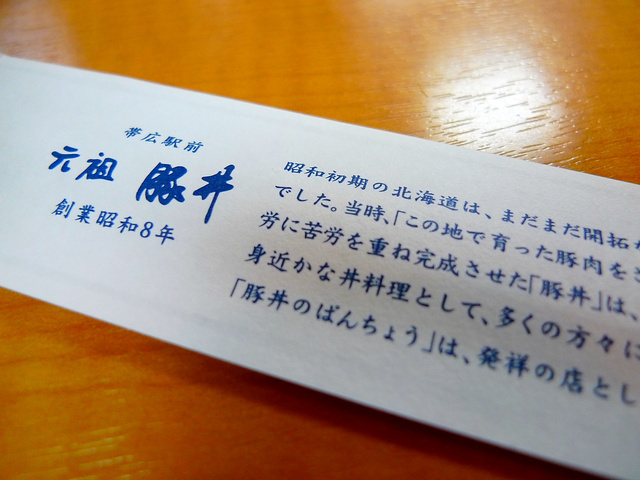 帯広駅前
元祖 豚丼
創業昭和8年
昭和初期の北海道は、まだまだ開拓
でした。当時、「この地で育った豚肉を
労に苦労を重ね完成させた「豚丼」は、
身近かな丼料理として、多くの方々に
「豚丼のぱんちょう」は、発祥の店とし